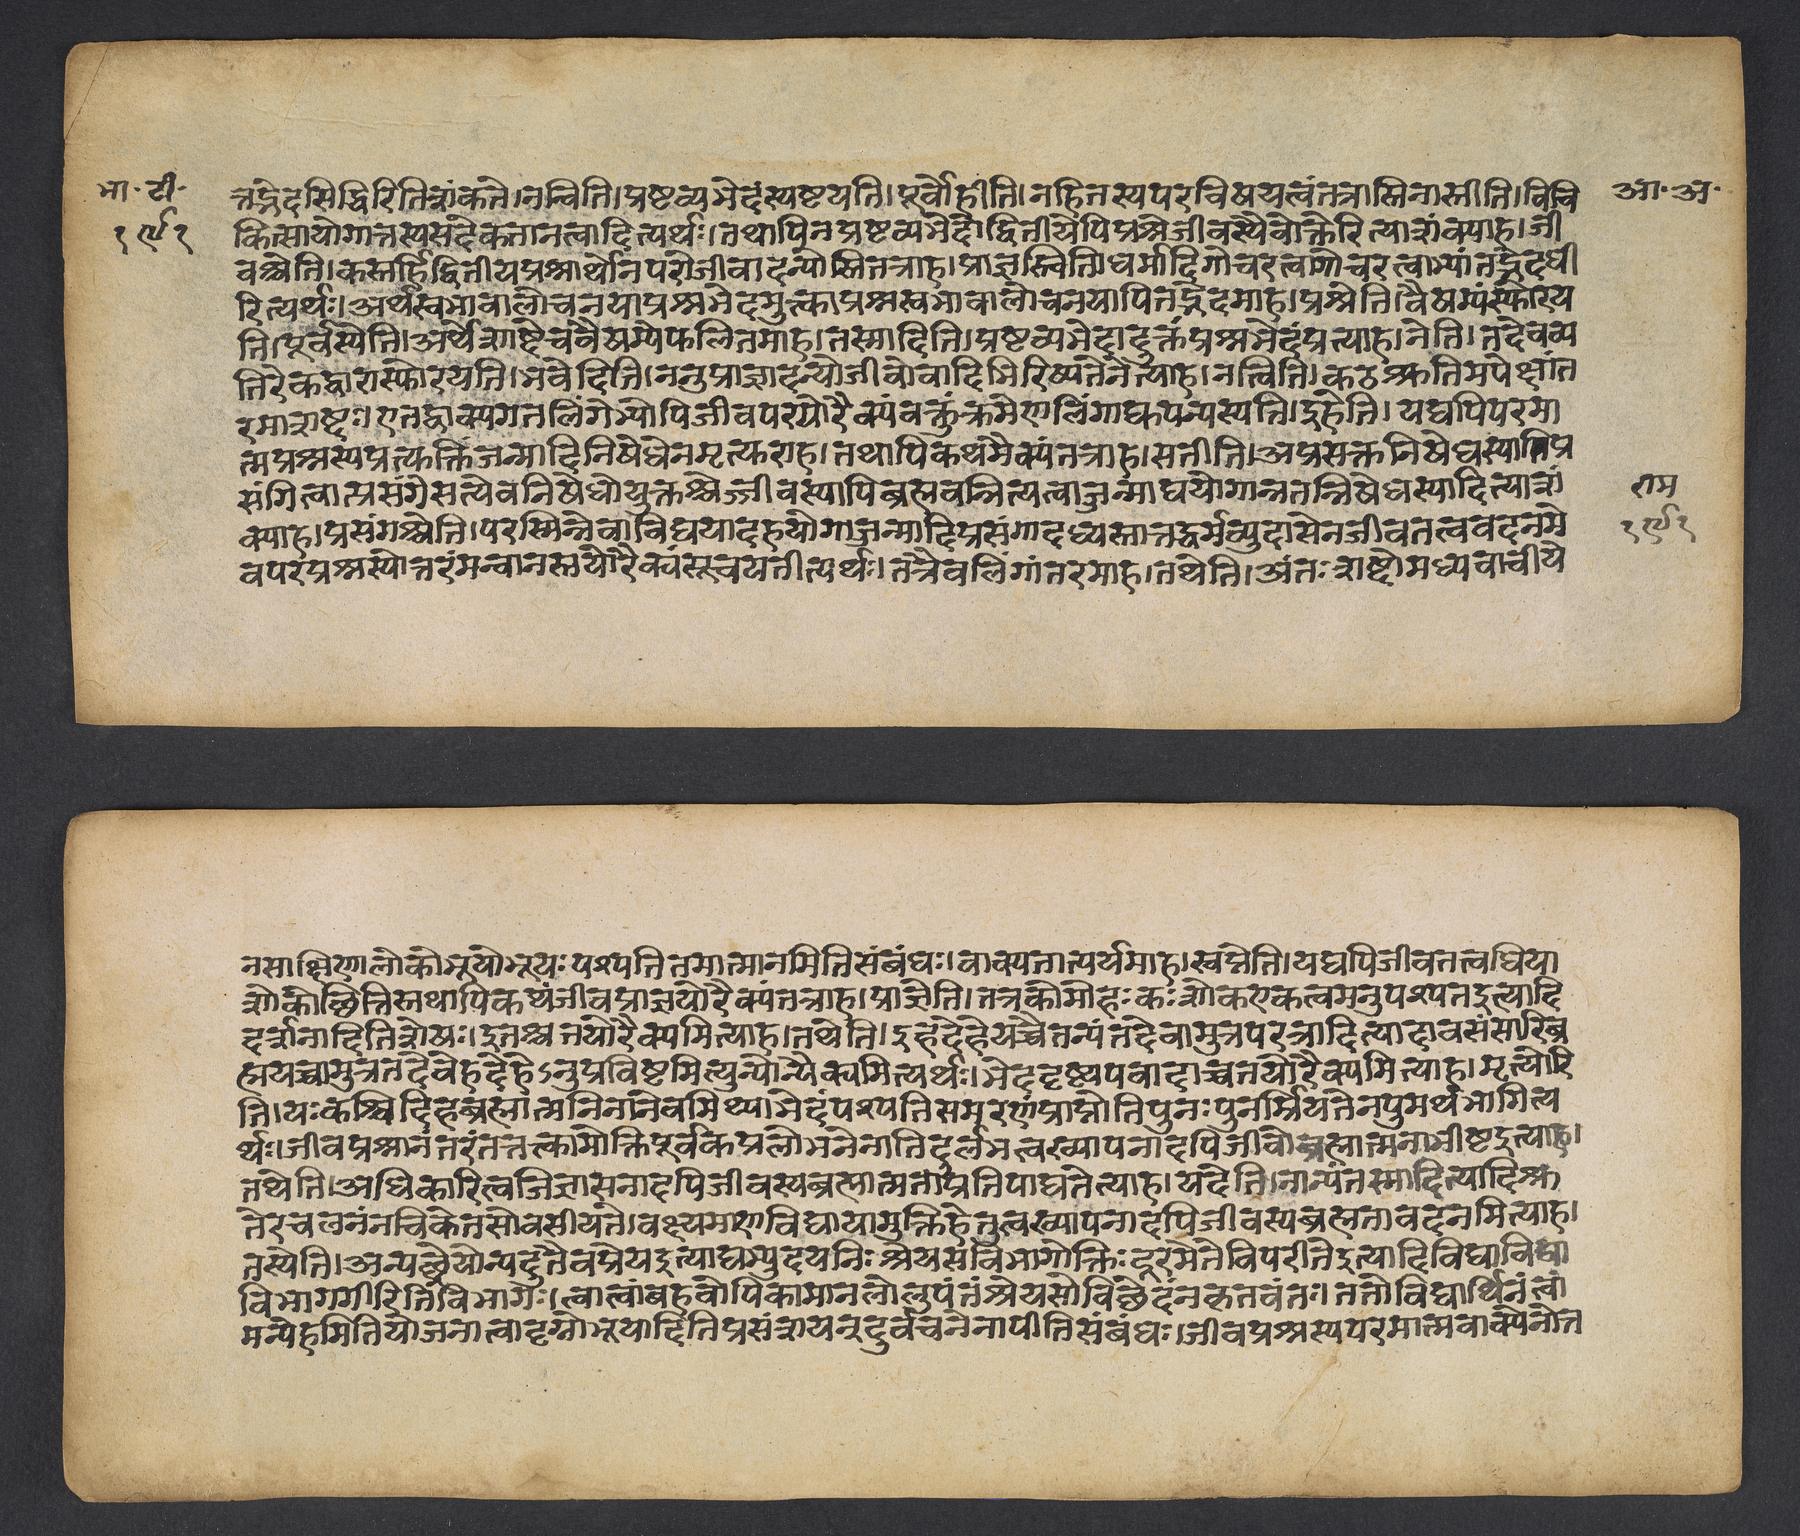 भा॰ टी॰
१९१
आ॰ अ॰
राम
१९१
तद्भेदसिद्धिरितिशंकते।नन्विति।प्रष्टव्यभेदंस्पष्टयति।पूर्वोहीति।नहितस्यपरविषयत्वंतत्रास्तिनास्तीति।विचि
कित्सायोगात्तस्यसदैकतानत्वादित्यर्थः।तथापिनप्रष्टव्यभेदोद्वितीयेपिप्रश्नेजीवस्यैवोक्तेरित्याशंक्याह।जी
वश्चेति।कस्तर्हिद्वितीयप्रश्नार्थोनपरोजीवादन्योस्तितत्राह।प्राज्ञस्त्विति।धर्मादिगोचरत्वागोचरत्वाभ्यांतद्भेदधी
रित्यर्थः।अर्थस्वभावालोचनयाप्रश्नभेदमुक्त्वाप्रश्नस्वभावालोचनयापितद्भेदमाह।प्रश्नेति।वैषम्यंस्फोरय
ति।पूर्वस्येति।अर्थेशाष्टेचवैषम्येफलितमाह।तस्मादिति।प्रष्टव्यभेदादुक्तंप्रश्नभेदंप्रत्याह।नेति।तदेवव्य
तिरेकद्वारास्फोरयति।भवेदिति।ननुप्राज्ञादन्योजीवोवादिभिरिष्यतेनेत्याह।नत्विति।कठश्रुतिमपेक्ष्यांत
रमाशष्टः।एतद्वाक्यगतलिंगेभ्योपिजीवपरयोरैक्यंवक्तुंक्रमेणलिंगान्युपन्यस्यति।इहेति।यद्यपिपरमा
त्मप्रश्नस्यप्रत्युक्तिर्जन्मादिनिषेधेनमृत्युराह।तथापिकथमैक्यंतत्राह।सतीति।अप्रसक्तनिषेधस्यातिप्र
संगित्वात्प्रसंगेसत्येवनिषेधोयुक्तश्चेज्जीवस्यापिब्रह्मवन्नित्यत्वाज्जन्माद्ययोगान्नतन्निषेधस्यादित्याशं
क्याह।प्रसंगश्चेति।परस्मिन्नेवाविद्ययादेहयोगाज्जन्मादिप्रसंगादध्यस्तात्तद्धर्मव्युदासेनजीवतत्त्ववदनमे
वपरप्रश्नस्योत्तरंमन्वानस्तयोरैक्यंसूचयतीत्यर्थः।तत्रैवलिंगांतरमाह।तथेति।अंतःशष्टोमध्यवाचीये
नसाक्षिणालोकोभूयोभूयःपश्यतितमात्मानमितिसंबंधः।वाक्यतात्पर्यमाह।स्वप्नेति।यद्यपिजीवतत्त्वधिया
शोकोच्छित्तिस्तथापिकथंजीवप्राज्ञयोरैक्यंतत्राह।प्राज्ञेति।तत्रकोमोहःकःशोकएकत्वमनुपश्यतइत्यादि
दर्शनादितिशेषः।इतश्चतयोरैक्यमित्याह।तथेति।इहदेहेयच्चैतन्यंतदेवामुत्रपरत्रादित्यादावसंसारिब्र
ह्मयच्चामुत्रतदेवेहदेहेऽनुप्रविष्टमित्यन्योन्यैक्यमित्यर्थः।भेददृष्ट्यपवादाच्चतयोरैक्यमित्याह।मृत्योरि
ति।यःकश्चिदिहब्रह्मात्मनिनानेवमिथ्याभेदंपश्यतिसमरणंप्राप्नोतिपुनःपुनर्म्रियतेनपुमर्थभागित्य
र्थः।जीवप्रश्नानंतरंतत्तत्कामोक्तिपूर्वकप्रलोभनेनातिदुर्लभत्वख्यापनादपिजीवोब्रह्मात्मनाभीष्टइत्याह।
तथेति।अधिकारित्वजिज्ञासनादपिजीवस्यब्रह्मात्मताप्रतिपाद्यतेत्याह।यदेति।नान्यंतस्मादित्यादिश्रु
तेरचलनंनचिकेतसोवसीयते।वक्ष्यमाणविद्यायामुक्तिहेतुत्वख्यापनादपिजीवस्यब्रह्मतावदनमित्याह।
तस्येति।अन्यच्छ्रेयोन्यदुतैवप्रेयइत्याद्यभ्युदयनिःश्रेयसविभागोक्तिःदूरमेतेविपरीतेइत्यादिविद्याविद्या
विभागगीरितिविभागः।त्वात्वांबहवोपिकामानलोलुपंतंश्रेयसोविच्छेदंनकृतवंतः।ततोविद्यार्थिनंत्वां
मन्येहमितियोजनात्वादृग्नोभूयादितिप्रसंशयन्दुर्वचनेनापीतिसंबंधः।जीवप्रश्नस्यपरमात्मवाक्येनोत्त